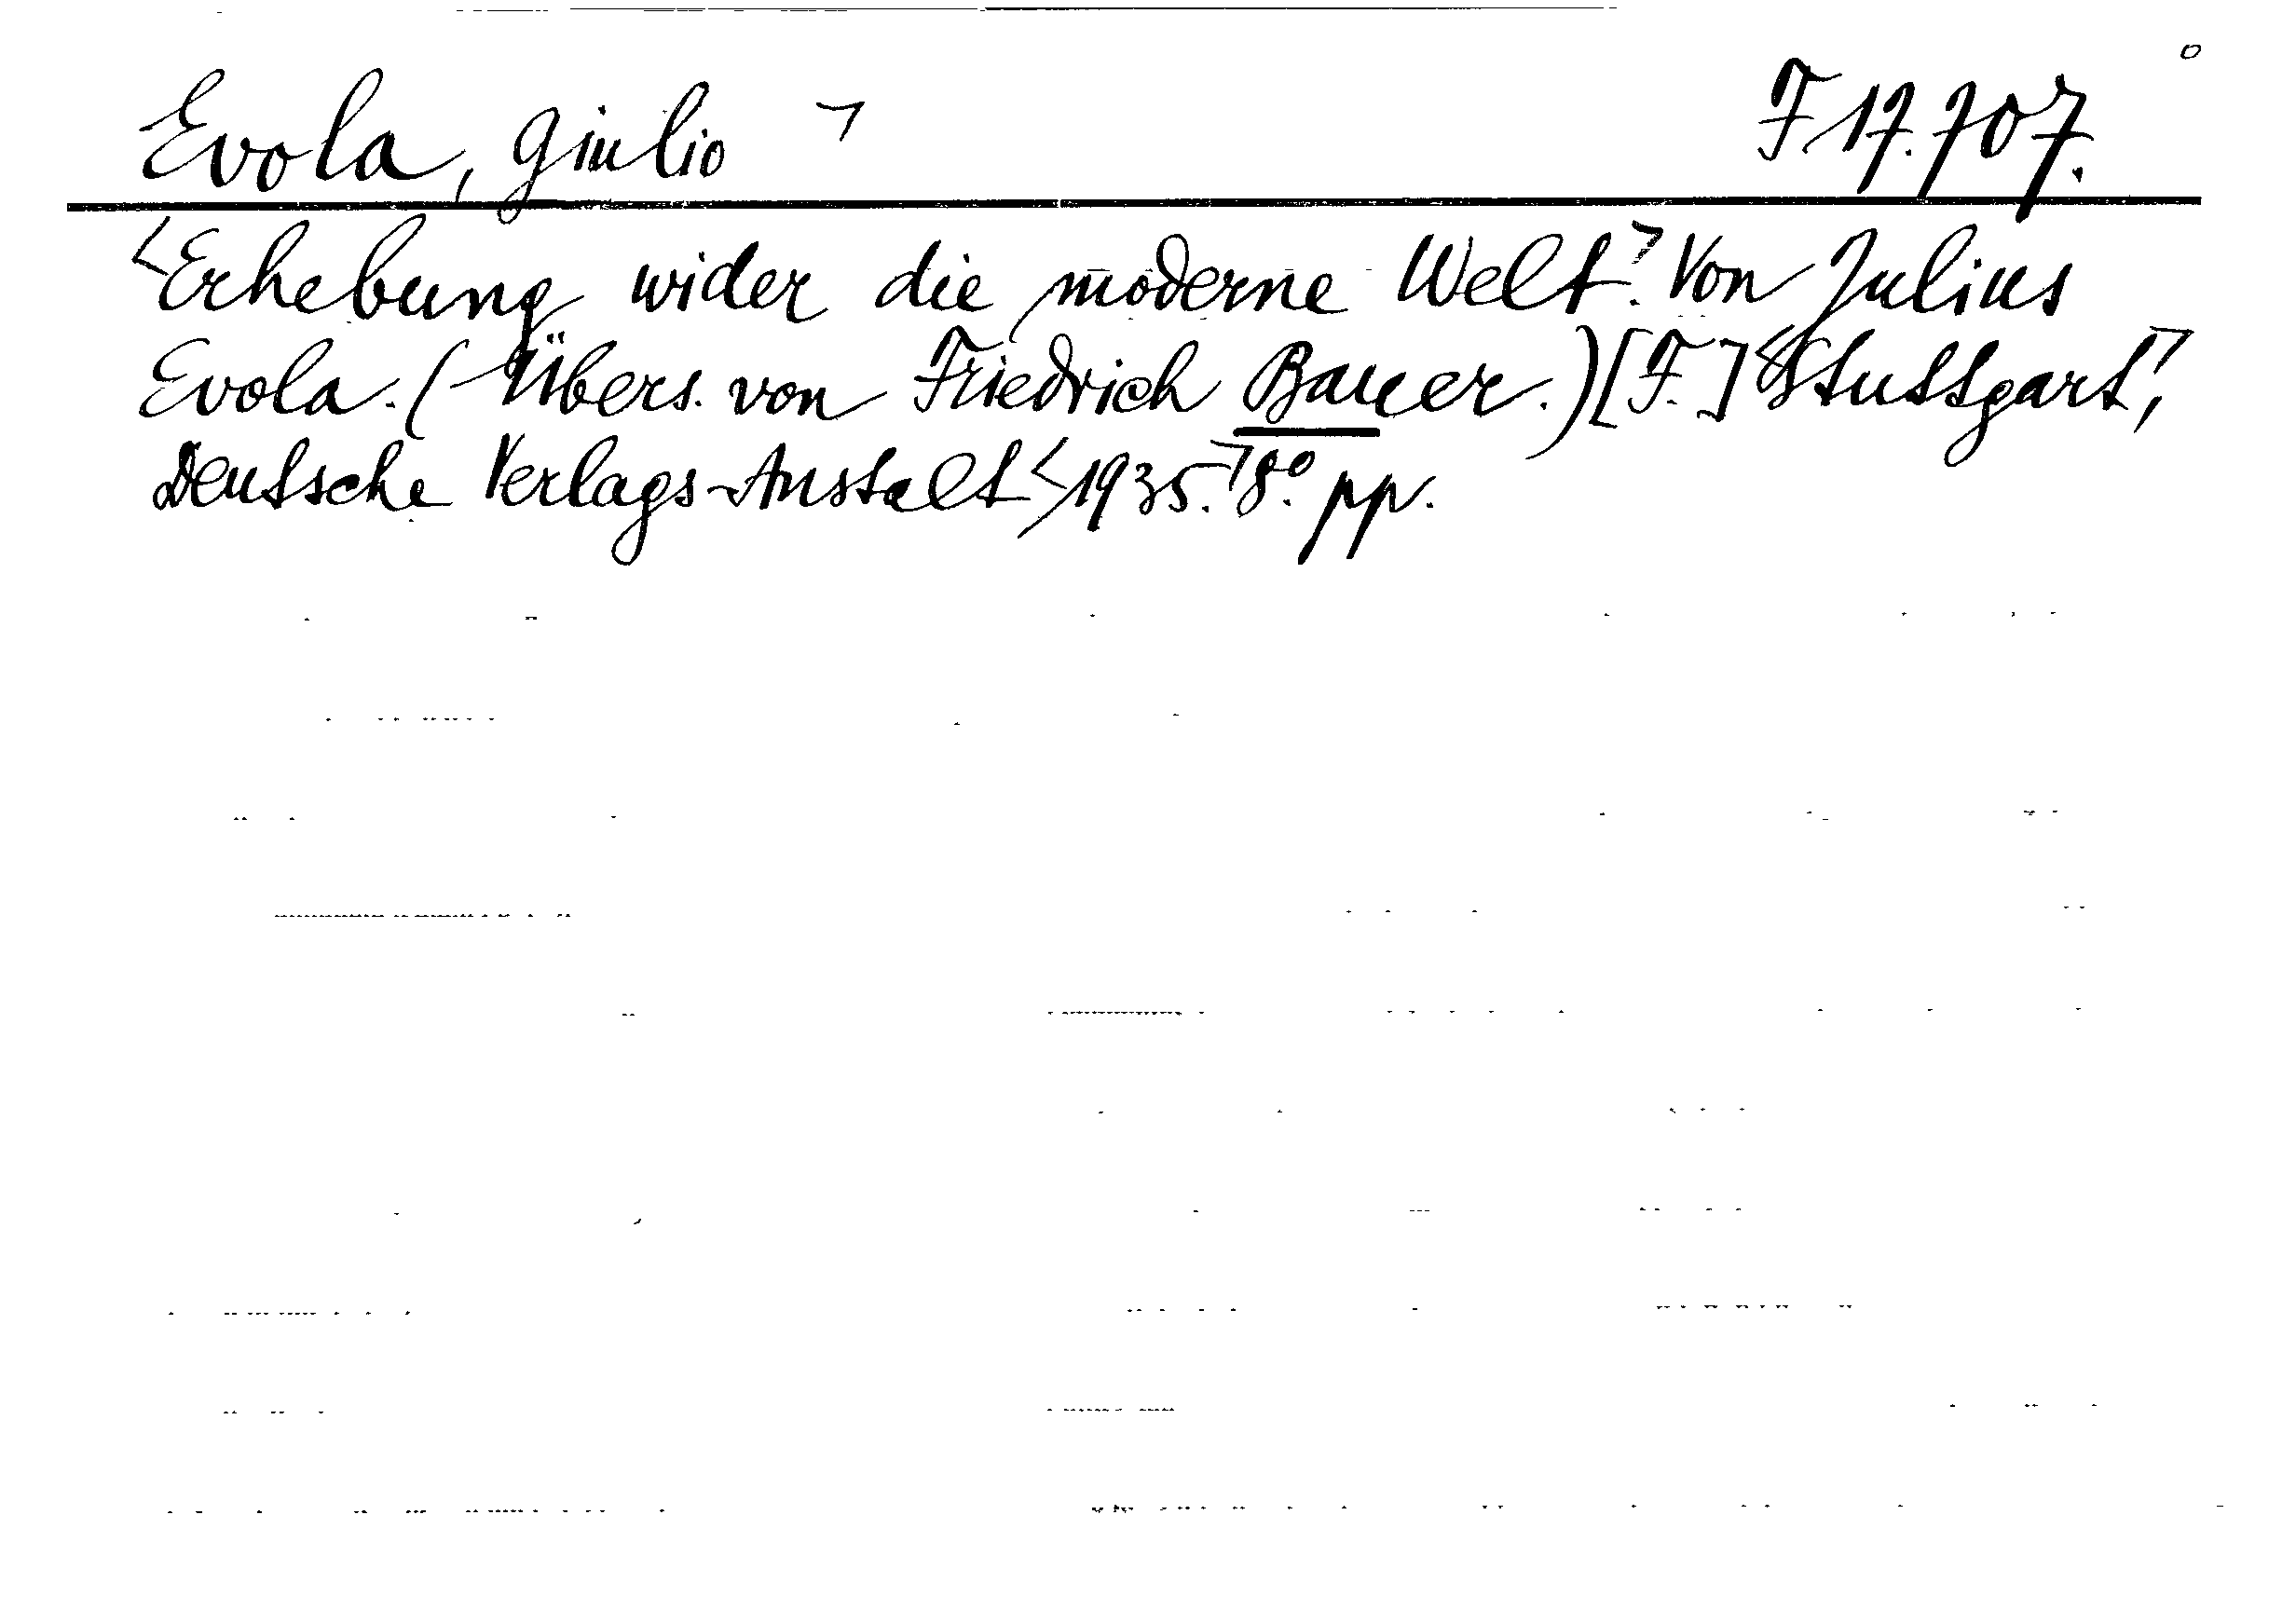 Evola, Giulio ¬ F 17.707.
<Erhebung wider die moderne Welt.¬ Von Julius
Evola. (-Übers. von Friedrich Bauer.) [F.] <Stuttgart,¬
Deutsche Verlags-Anstalt <1935.¬ 8° pp.